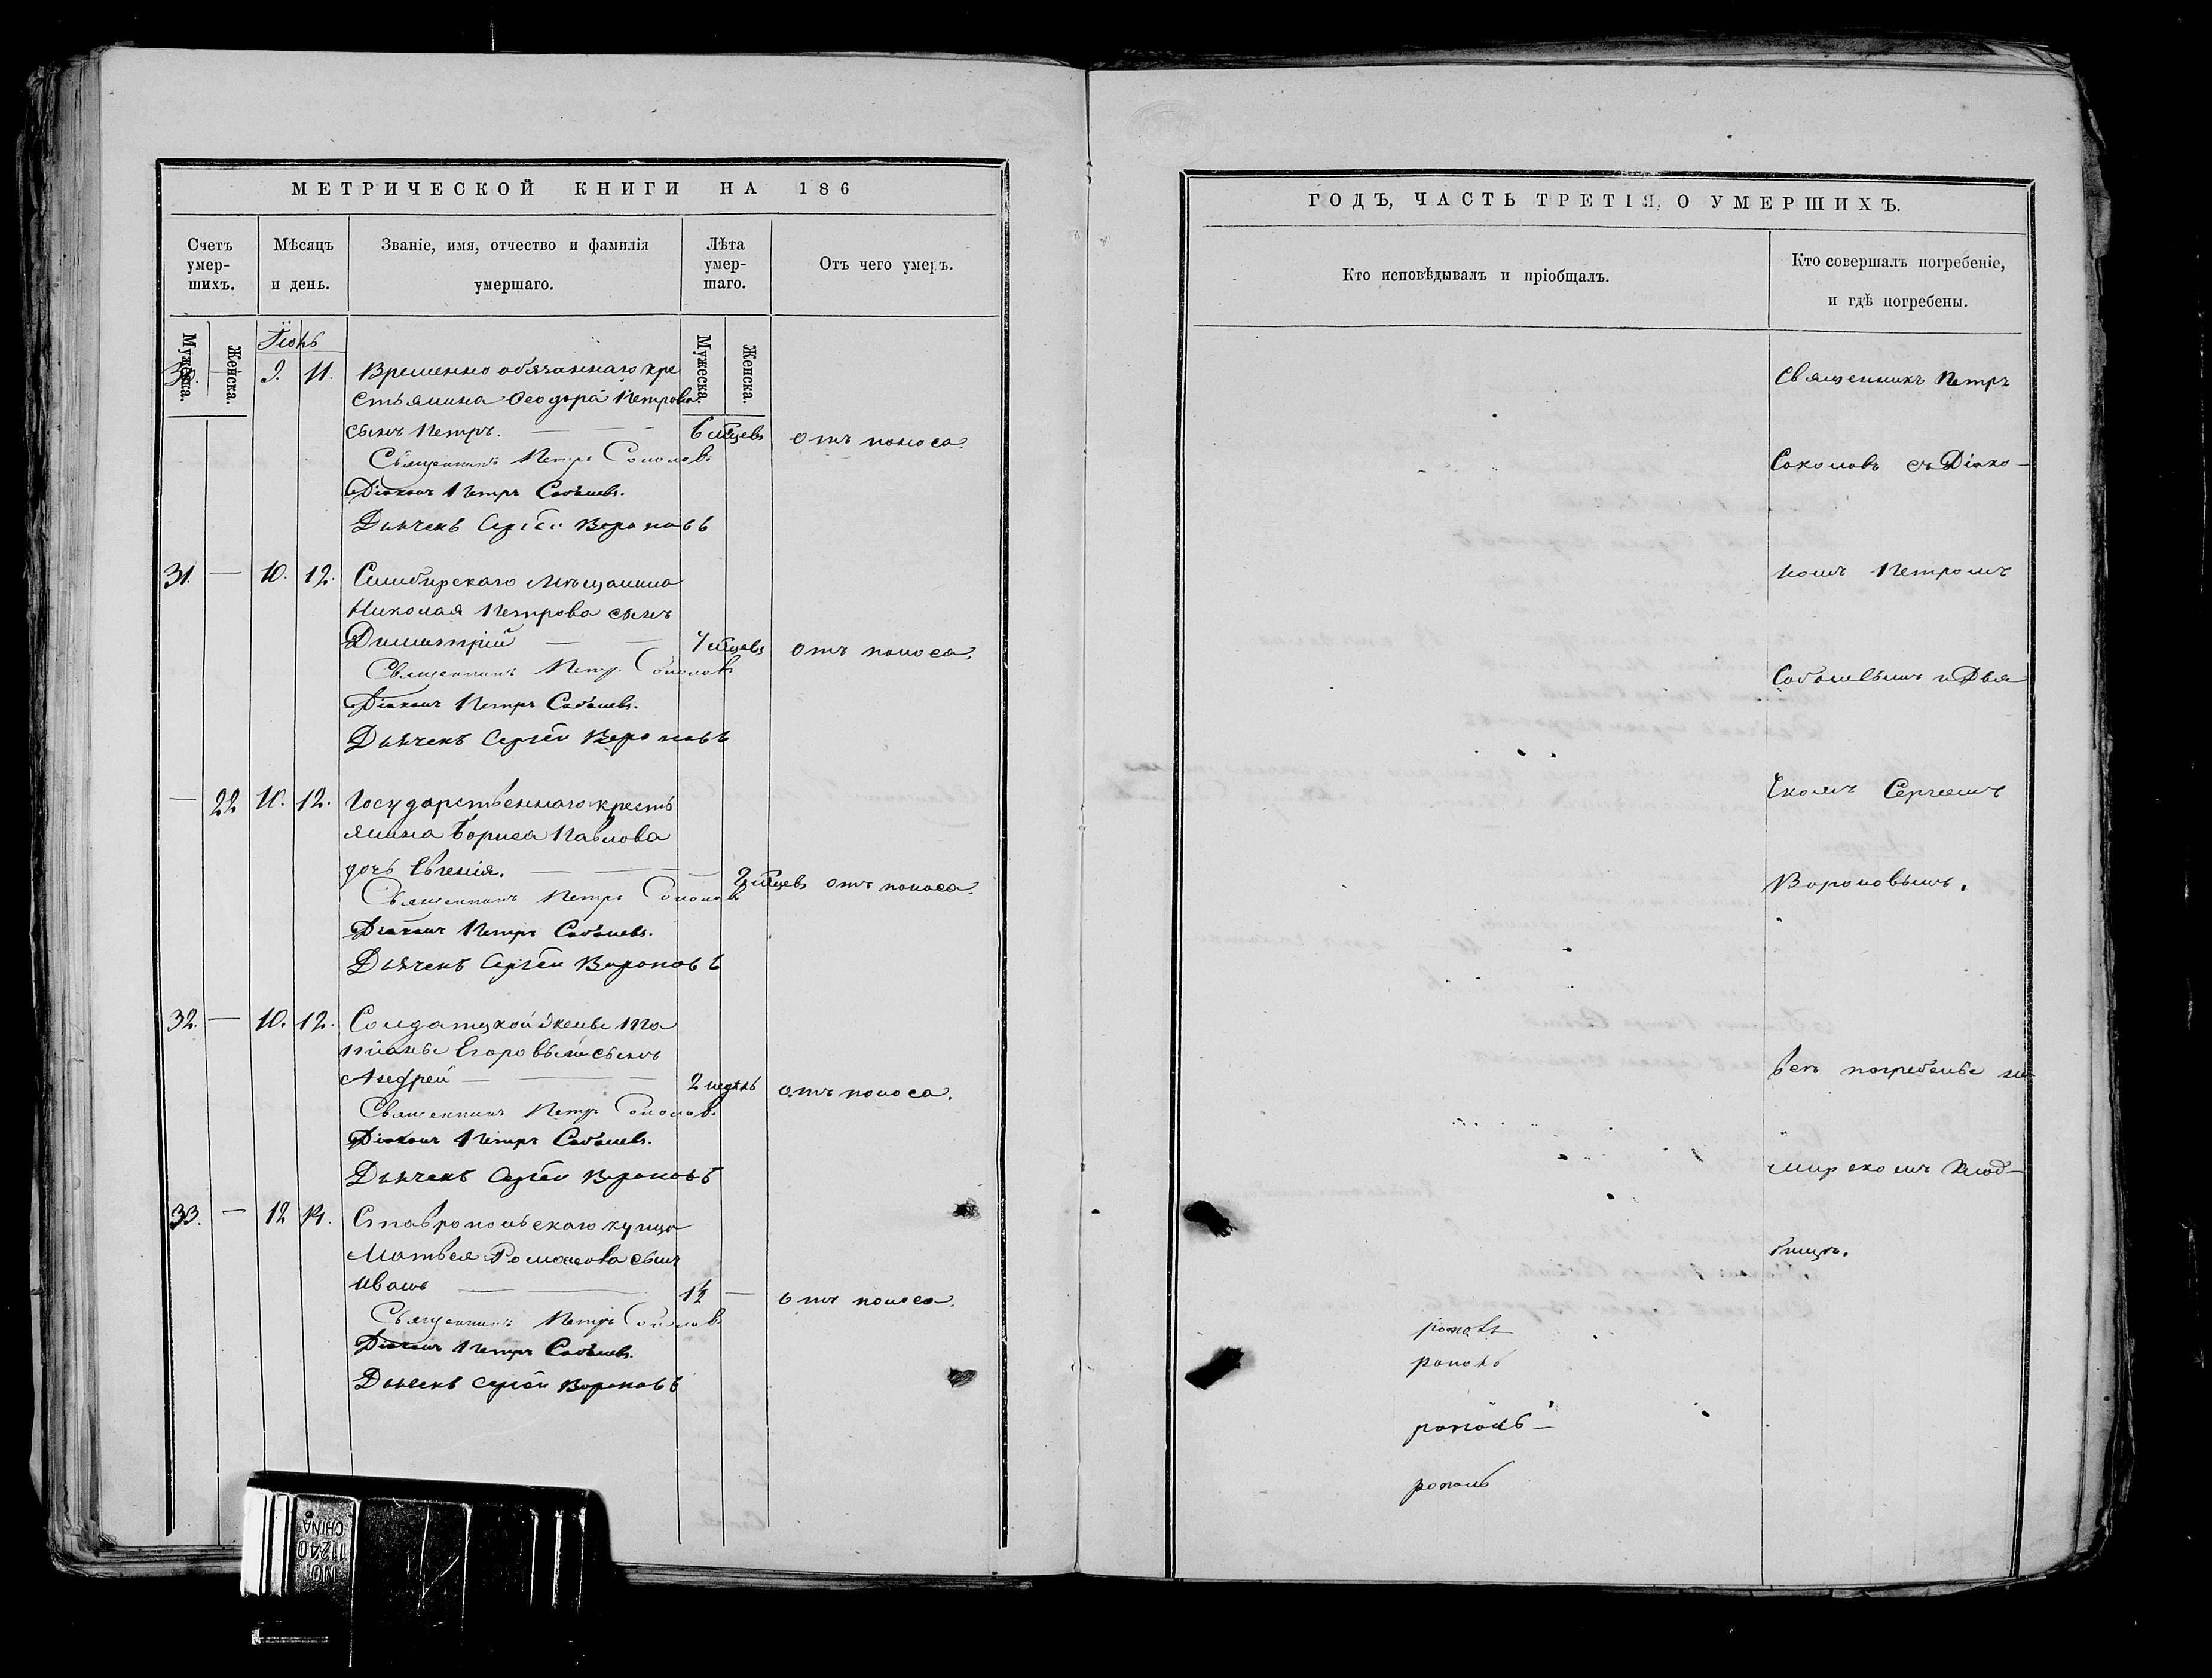 МЕТРИЧЕСКОЙ КНИГИ НА 186
Счетъ умер-шихъ.
Мѣсяцъ и день.
Званіе, имя, отчество и фамилія умершаго.
Лѣта умер-шаго.
Отъ чего умеръ.
Мужеска.
Женска.
Мужеска.
Женска.
Іюнь
30. — 9. 11. Временно обязаннаго кре
стьянина Ѳеодора Петрова
сынъ Петръ. — — 6 мѣсцевъ отъ поноса.
Священникъ Петръ Соколовъ
Діаконъ Петръ Соболевъ.
Дьячекъ Сергѣй Вороновъ
31. — 10. 12. Симбирскаго мѣщанина
Николая Петрова сынъ
Димитрій — — 7 мѣсцевъ отъ поноса.
Священникъ Петръ Соколовъ
Діаконъ Петръ Соболевъ.
Дьячекъ Сергѣй Вороновъ
— 22 10. 12. Государственнаго кресть
янина Бориса Павлова
дочь Евгенія. — — мѣсцевъ отъ поноса.
Священникъ Петръ Соколовъ
Діаконъ Петръ Соболевъ.
Дьячекъ Сергѣй Вороновъ
32. — 10. 12. Солдатской жены Та
тіаны Егоровый сынъ
Андрей — — 2 недѣль отъ поноса.
Священникъ Петръ Соколовъ
Діаконъ Петръ Соболевъ.
Дьячекъ Сергѣй Вороновъ
33. — 12 14. Ставропольскаго купца
Матвея Романова сынъ
Иванъ — 1½ — отъ поноса.
Священникъ Петръ Соколовъ
Діаконъ Петръ Соболевъ.
Дьячекъ Сергѣй Вороновъ
NO 11240 CHINA
ГОДЪ, ЧАСТЬ ТРЕТІЯ, О УМЕРШИХЪ.
Кто исповѣдывалъ и пріобщалъ.
Кто совершалъ погребеніе, и гдѣ погребены.
Священникъ Петръ
Соколовъ съ Діако-
номъ Петромъ
Соболевымъ и Дья
чкомъ Сергеемъ
Вороновымъ.
всѣ погребены на
мирскомъ клад-
бищѣ.
роновъ
роновъ